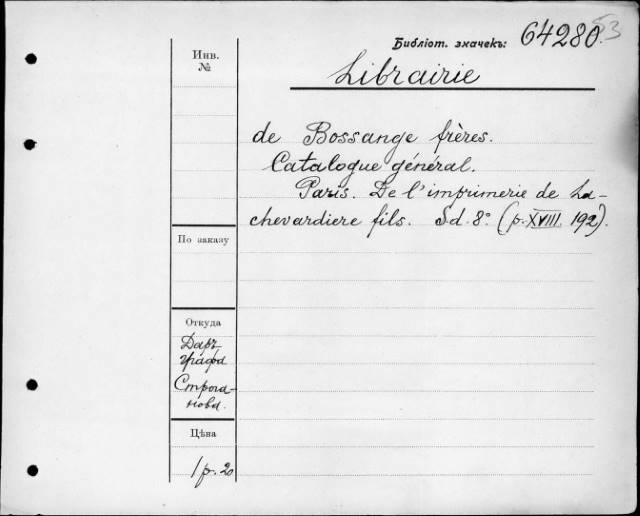 Библіот. значекъ: 64280.
53
Инв.
№
Librairie
de Bossange frères.
Catalogue général.
Paris. De l'imprimerie de La-
chevardiere fils. S.d. 8º. (p. XVIII. 192).
По заказу
Откуда
Даръ
графа
Строга-
нова.
Цѣна
1 р. 20